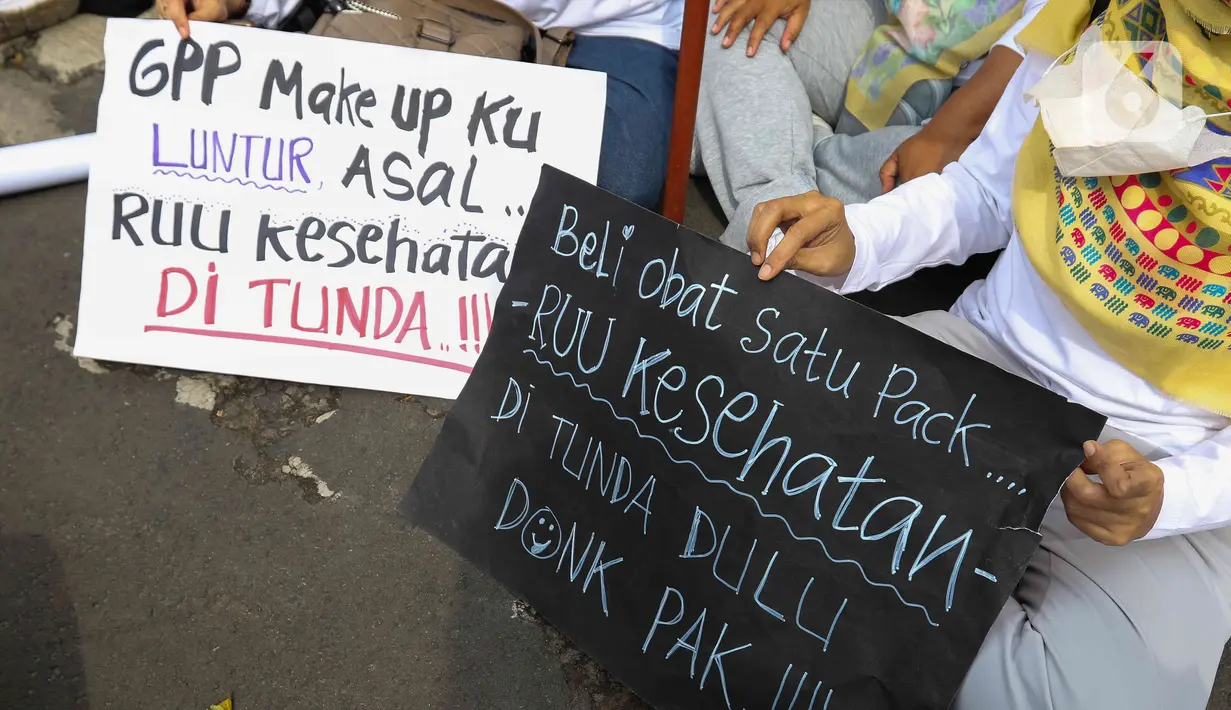 GPP Make up KU
LUNTUR, ASAL..
RUU Kesehatan
Di TUNDA..!!!
Beli obat satu Pack....,,,
-RUU Kesehatan-
Di TUNDA DULU
DONK PAK!!!!